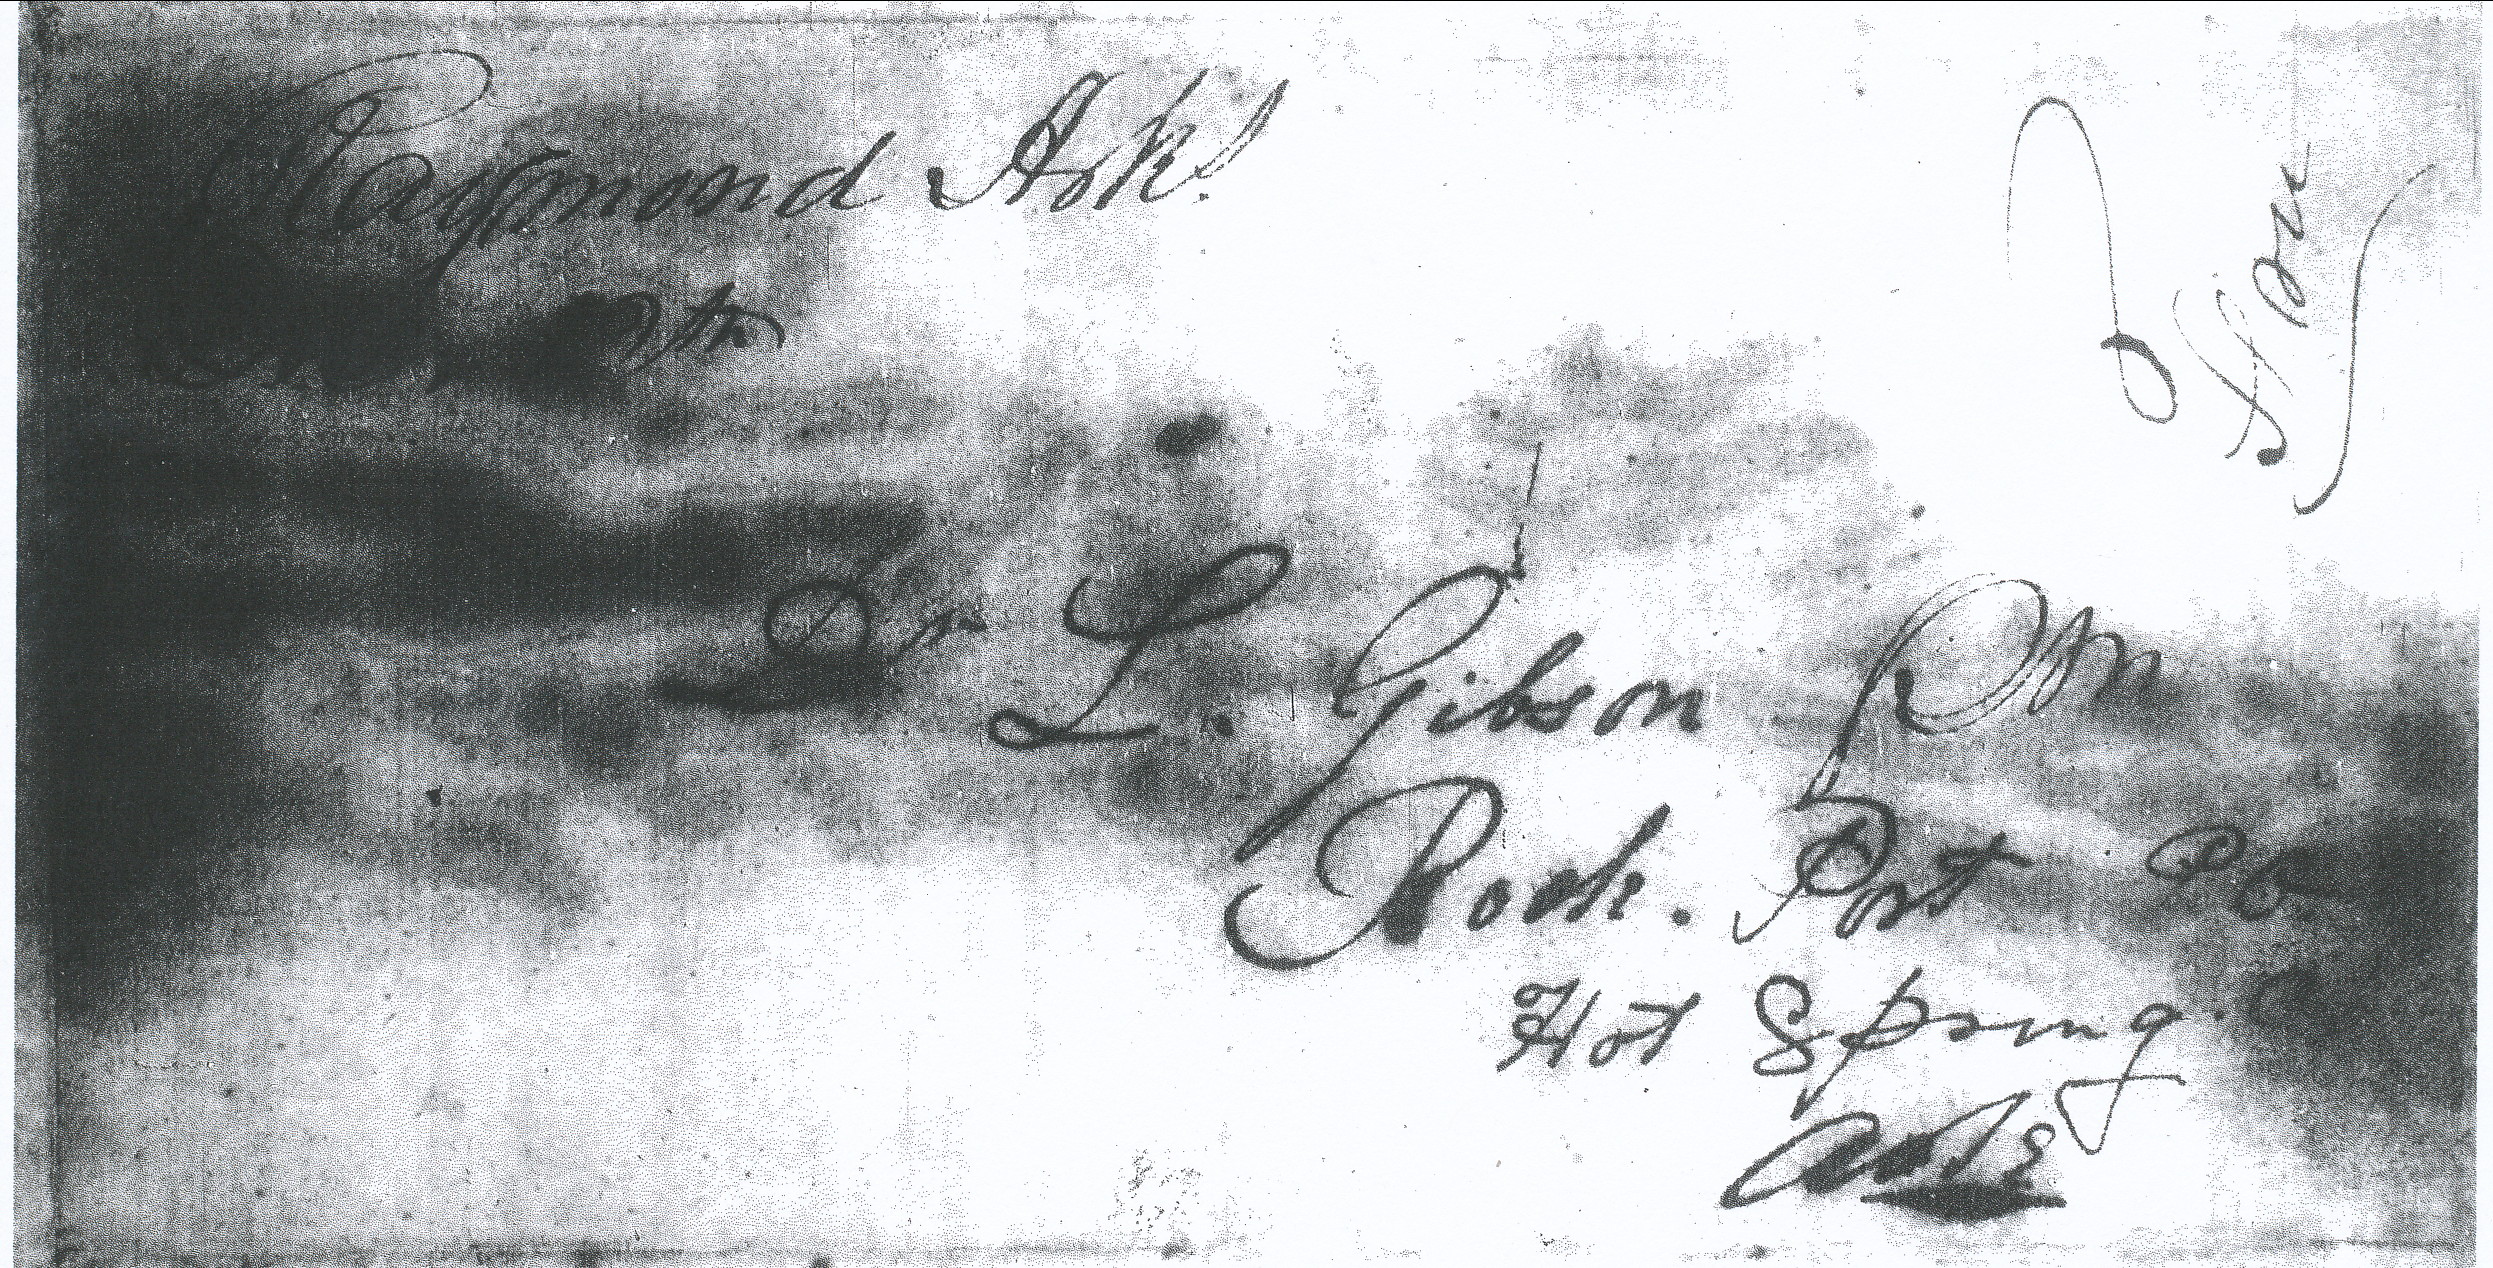 Raymond Ark!
Free
Dr L. Gibson PM
Rock. Port PO
Hot Spring. C
Arks